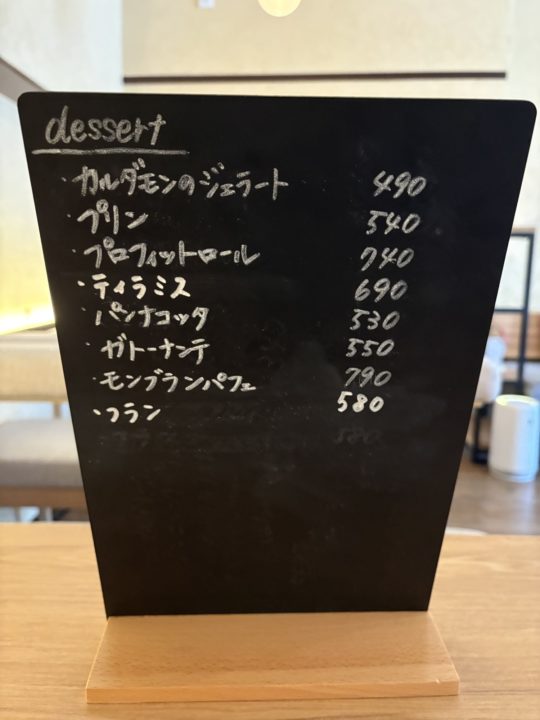 dessert
・カルダモンのジェラート 490
・プリン 540
・プロフィットロール 740
・ティラミス 690
・パンナコッタ 530
・ガトーナンテ 550
・モンブランパフェ 790
・フラン 580